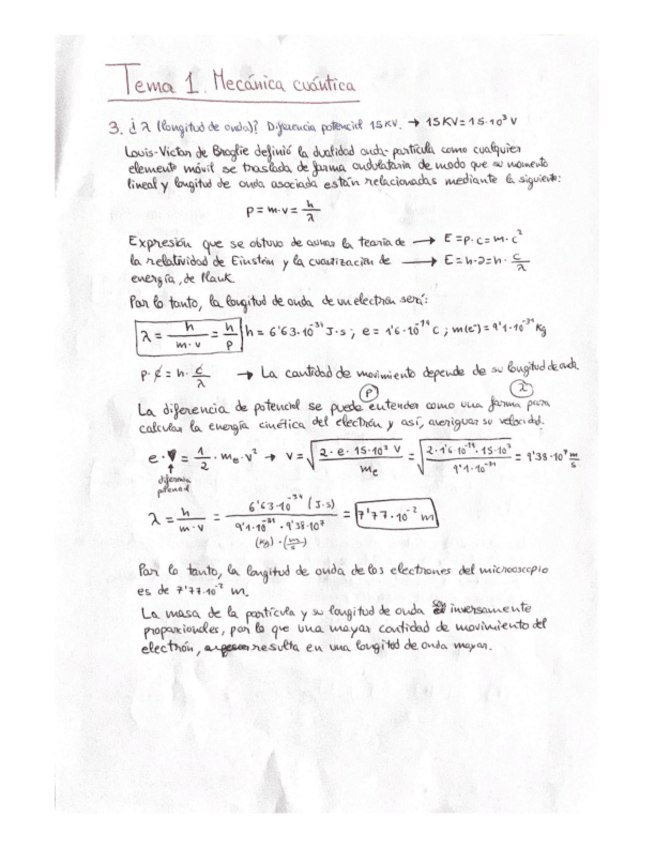 Tema 1. Mecánica cuántica
3. ¿ λ (longitud de onda)? Diferencia potencial 15KV. → 15KV = 15·10³ V
Louis-Victor de Broglie definió la dualidad onda-partícula como cualquier
elemento móvil se traslada de forma ondulatoria de modo que su momento
lineal y longitud de onda asociada están relacionadas mediante la siguiente:
p = m·v = h/λ
Expresión que se obtuvo de aunar la teoría de → E = p·c = m·c²
la relatividad de Einstein y la cuantización de → E = h·ν = h· c/λ
energía, de Plank
Por lo tanto, la longitud de onda de un electrón será:
λ = h/m·v = h/p h = 6'63·10⁻³⁴ J·s ; e = 1'6·10⁻¹⁹ C ; m(e⁻) = 9'1·10⁻³¹ Kg
p·c = h· c/λ → La cantidad de movimiento depende de su longitud de onda.
(p) (λ)
La diferencia de potencial se puede entender como una forma para
calcular la energía cinética del electrón y así, averiguar su velocidad.
e·V = 1/2 · me·v² → v = √(2·e·15·10³ V / me) = √(2·1'6·10⁻¹⁹·15·10³ / 9'1·10⁻³¹) = 9'38·10⁷ m/s
diferencia
potencial
λ = h/m·v = 6'63·10⁻³⁴ (J·s) / 9'1·10⁻³¹ · 9'38·10⁷ = 7'77·10⁻² m
(Kg) · (m/s)
Por lo tanto, la longitud de onda de los electrones del microscopio
es de 7'77·10⁻² m.
La masa de la partícula y su longitud de onda inversamente
proporcionales, por lo que una mayor cantidad de movimiento del
electrón, resulta en una longitud de onda mayor.